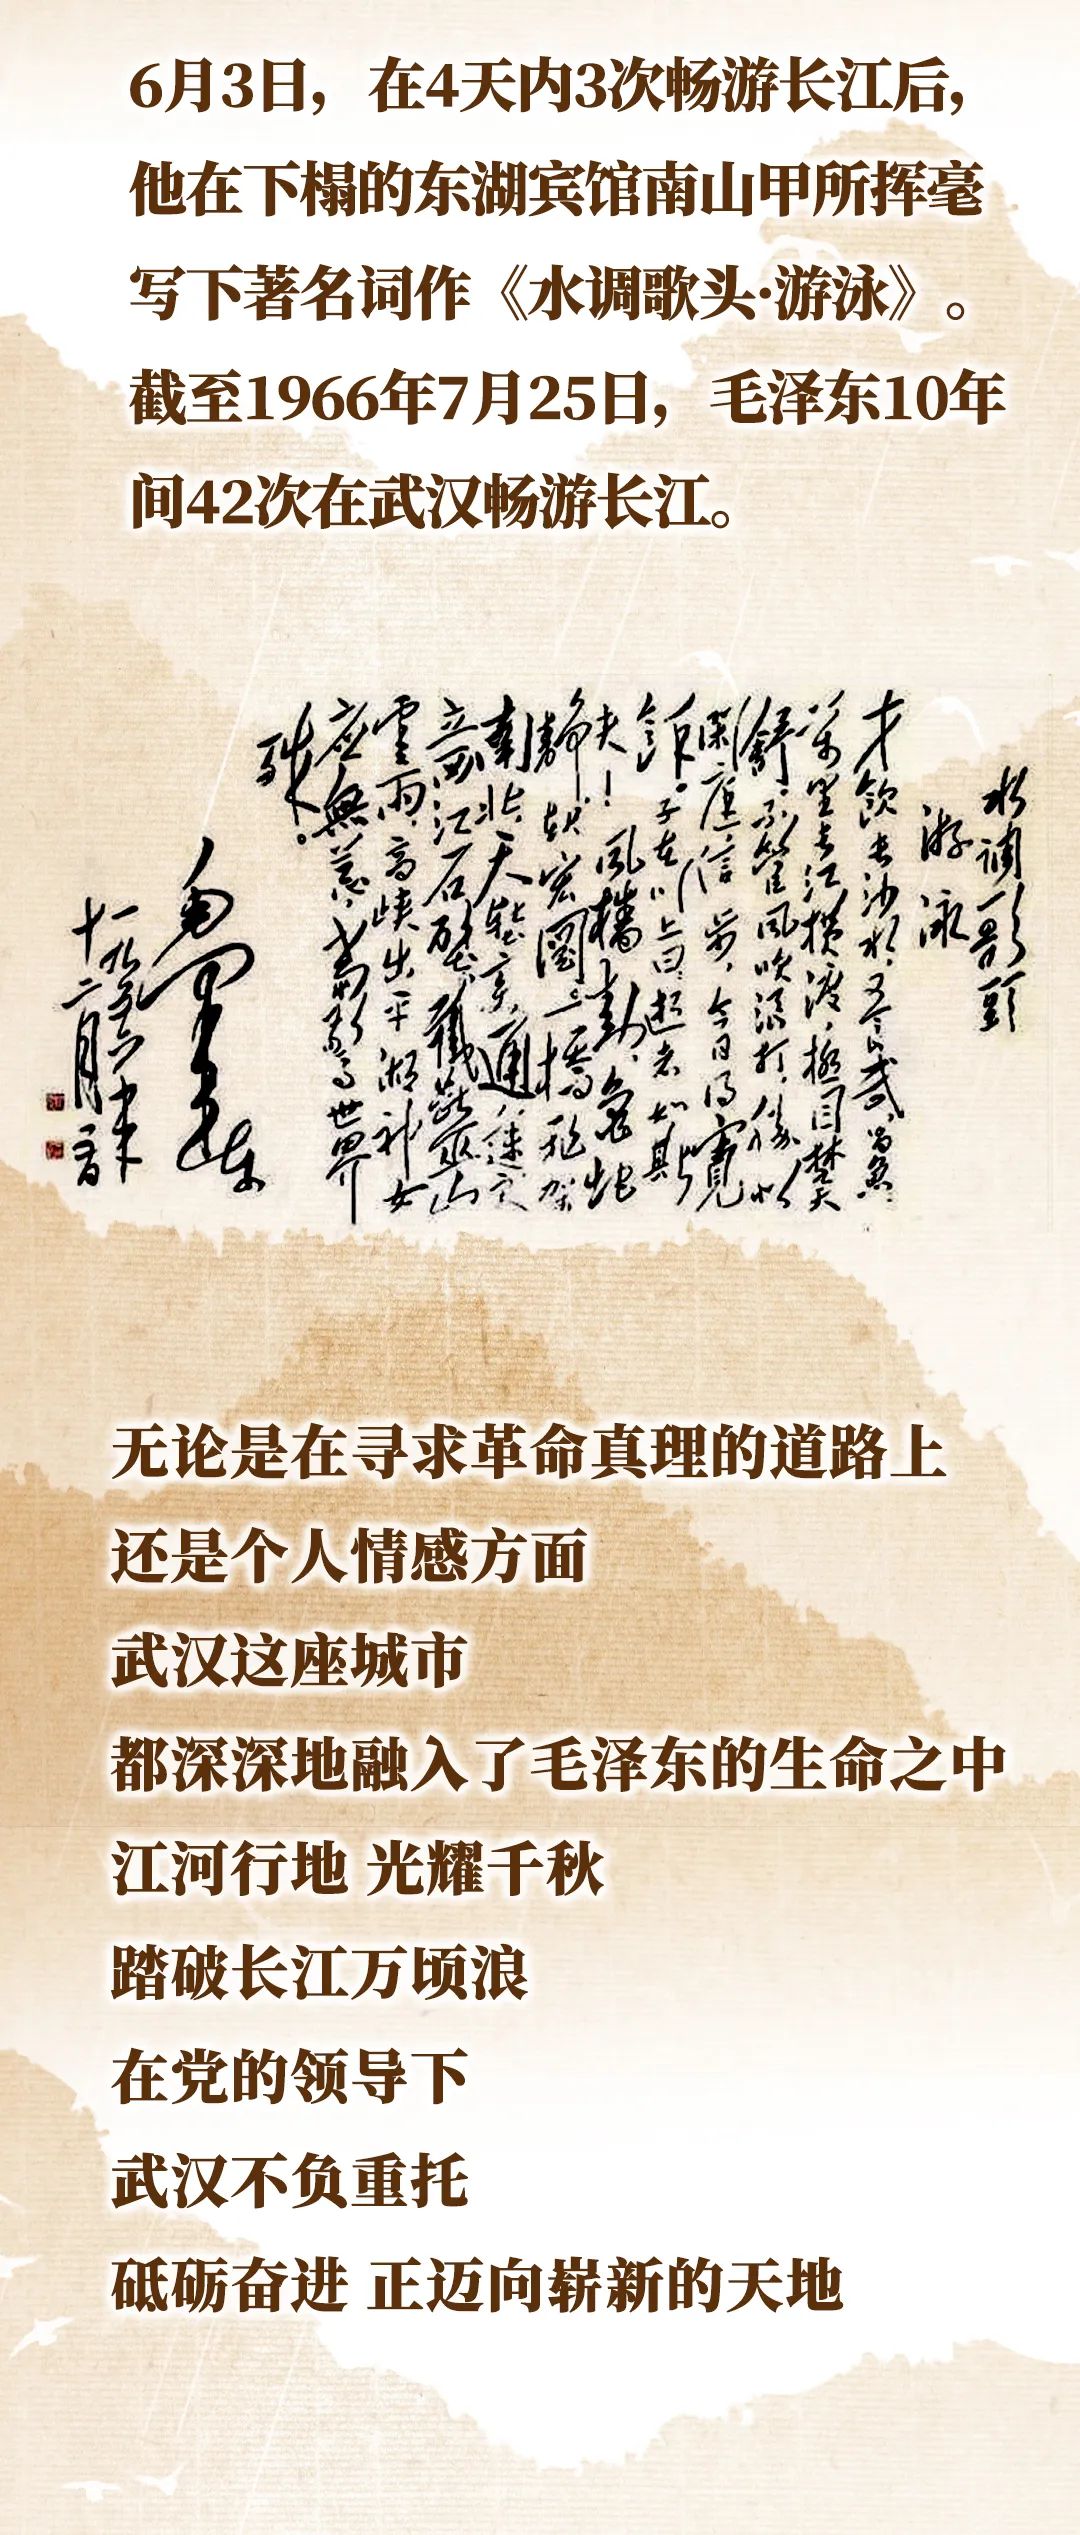 6月3日，在4天内3次畅游长江后，
他在下榻的东湖宾馆南山甲所挥毫
写下著名词作《水调歌头·游泳》。
截至1966年7月25日，毛泽东10年
间42次在武汉畅游长江。
水调歌头
游泳
才飲长沙水，又食武昌魚
萬里长江横渡，極目楚天
舒。不管风吹浪打，勝似
闲庭信步，今日得寬
餘。子在川上曰：逝者如斯
夫！风樯動，龜蛇
静，起宏圖。一橋飛架
南北，天塹变通途。更
立西江石壁，截断巫山
雲雨，高峡出平湖。神女
应無恙，当驚世界
殊。
毛泽东
一九五六年
十二月
无论是在寻求革命真理的道路上
还是个人情感方面
武汉这座城市
都深深地融入了毛泽东的生命之中
江河行地 光耀千秋
踏破长江万顷浪
在党的领导下
武汉不负重托
砥砺奋进 正迈向崭新的天地